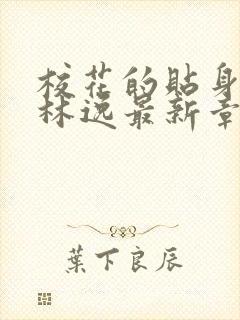 校花的貼身
林逸最新章
葉下良辰